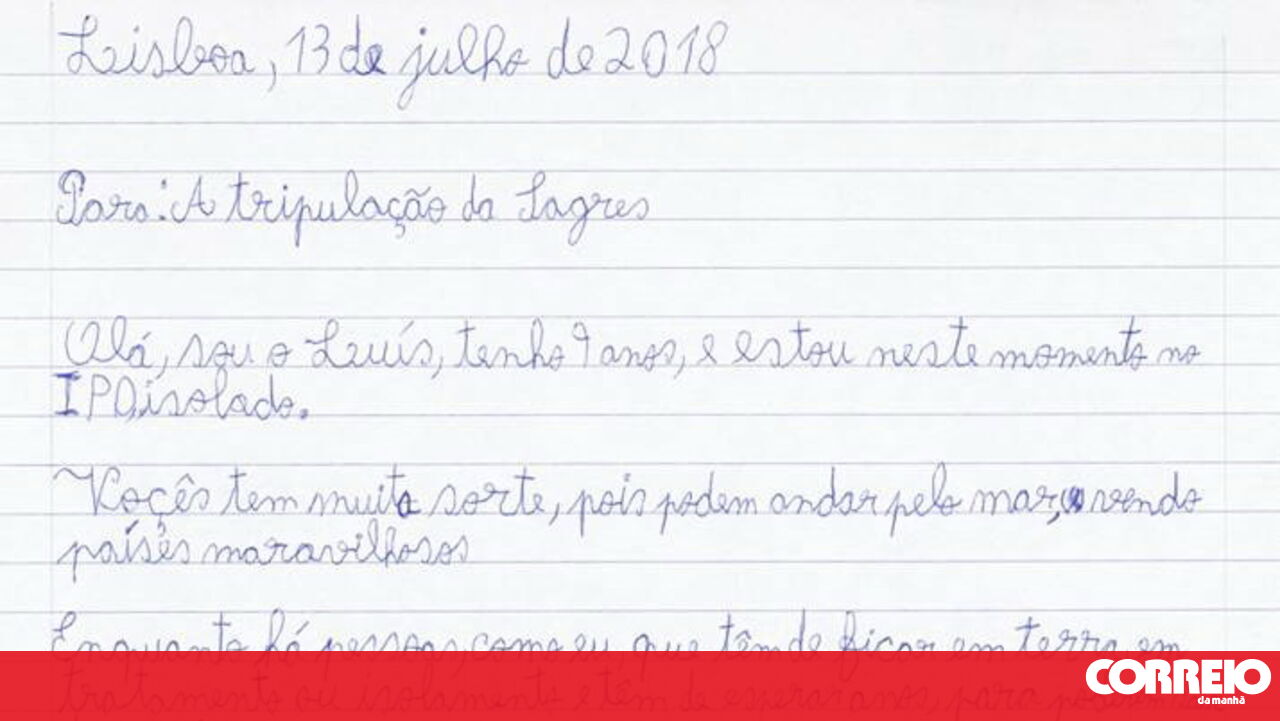 Lisboa, 13 de julho de 2018
Para: A tripulação da Sagres
Olá, sou o Luís, tenho 9 anos, e estou neste momento no
IPO,isolado.
Voçês tem muita sorte, pois podem andar pelo mar, vendo
países maravilhosos
Enquanto há pessoas,como eu, que têm de ficar em terra em
tratamento ou isolamento e têm de esperar anos, para
CORREIO
da manhã